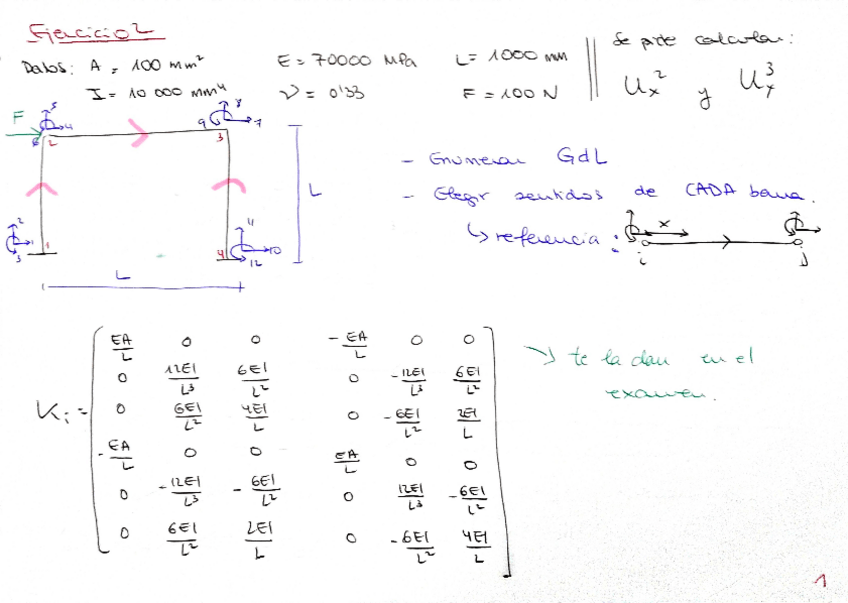 Ejercicio 2
Datos: A = 100 mm² E = 70000 MPa L = 1000 mm
I = 10 000 mm⁴ ν = 0'33 F = 100 N
Se pide calcular:
Uₓ² y Uᵧ³
F 5 4 6 2 8 9 7 3
2 1 3 1 11 10 12 4
L
L
- Enumerar GdL
- Elegir sentidos de CADA barra.
↳ referencia: x i j
Kᵢ =
EA/L 0 0 -EA/L 0 0
0 12EI/L³ 6EI/L² 0 -12EI/L³ 6EI/L²
0 6EI/L² 4EI/L 0 -6EI/L² 2EI/L
-EA/L 0 0 EA/L 0 0
0 -12EI/L³ -6EI/L² 0 12EI/L³ -6EI/L²
0 6EI/L² 2EI/L 0 -6EI/L² 4EI/L
→ te la dan en el
examen.
1